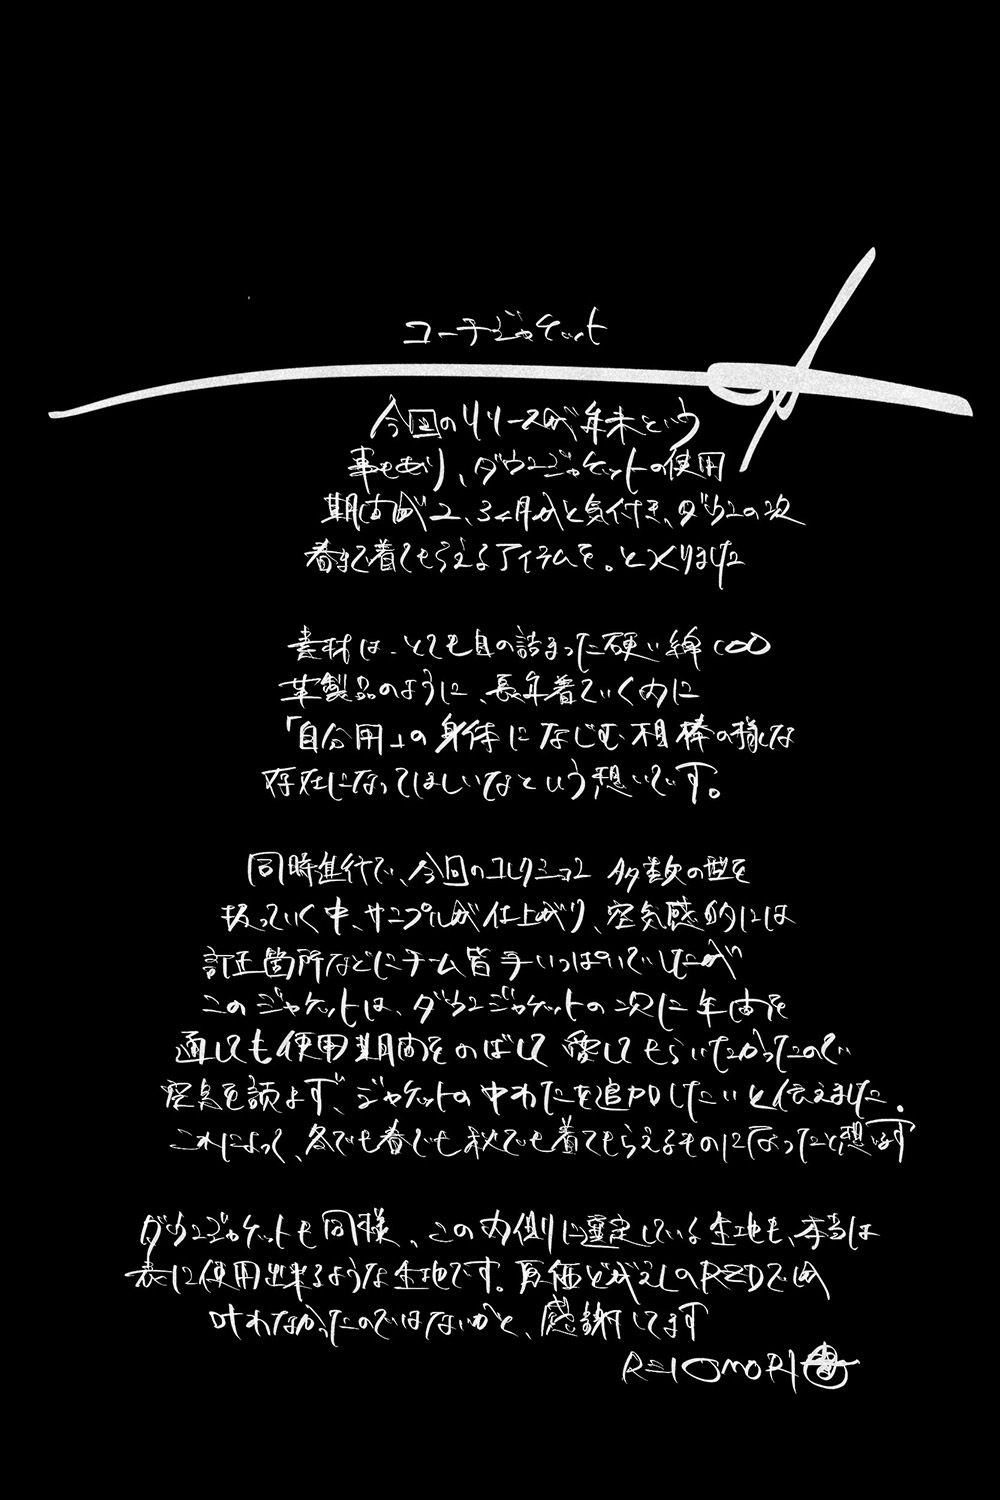 コーチジャケット
今回のリリースが年末という
事もあり、ダウンジャケットの使用
期間が2、3ヶ月かと気付き、ダウンの次
春まで着てもらえるアイテムを。とつくりました
素材は、とても目の詰まった硬い綿
革製品のように、長年着ていく内に
「自分用」の身体になじむ相棒の様な
存在になってほしいなという想いです。
同時進行で、今回のコレクション 多数の型を
扱っていく中、サンプルが仕上がり、空気感的には
訂正箇所などにチーム皆手いっぱいでしたが
このジャケットは、ダウンジャケットの次に年間を
通しても使用期間をのばして愛してもらいたかったので
空気を読まず、ジャケットの中わたを追加したいと伝えました。
これによって、冬でも春でも秋でも着てもらえるものになったと想います
ダウンジャケットも同様、この内側に選定している生地も、本当は
表に使用出来るような生地です。原価どがえしのRZDでしか
叶わなかったのではないかと、感謝してます